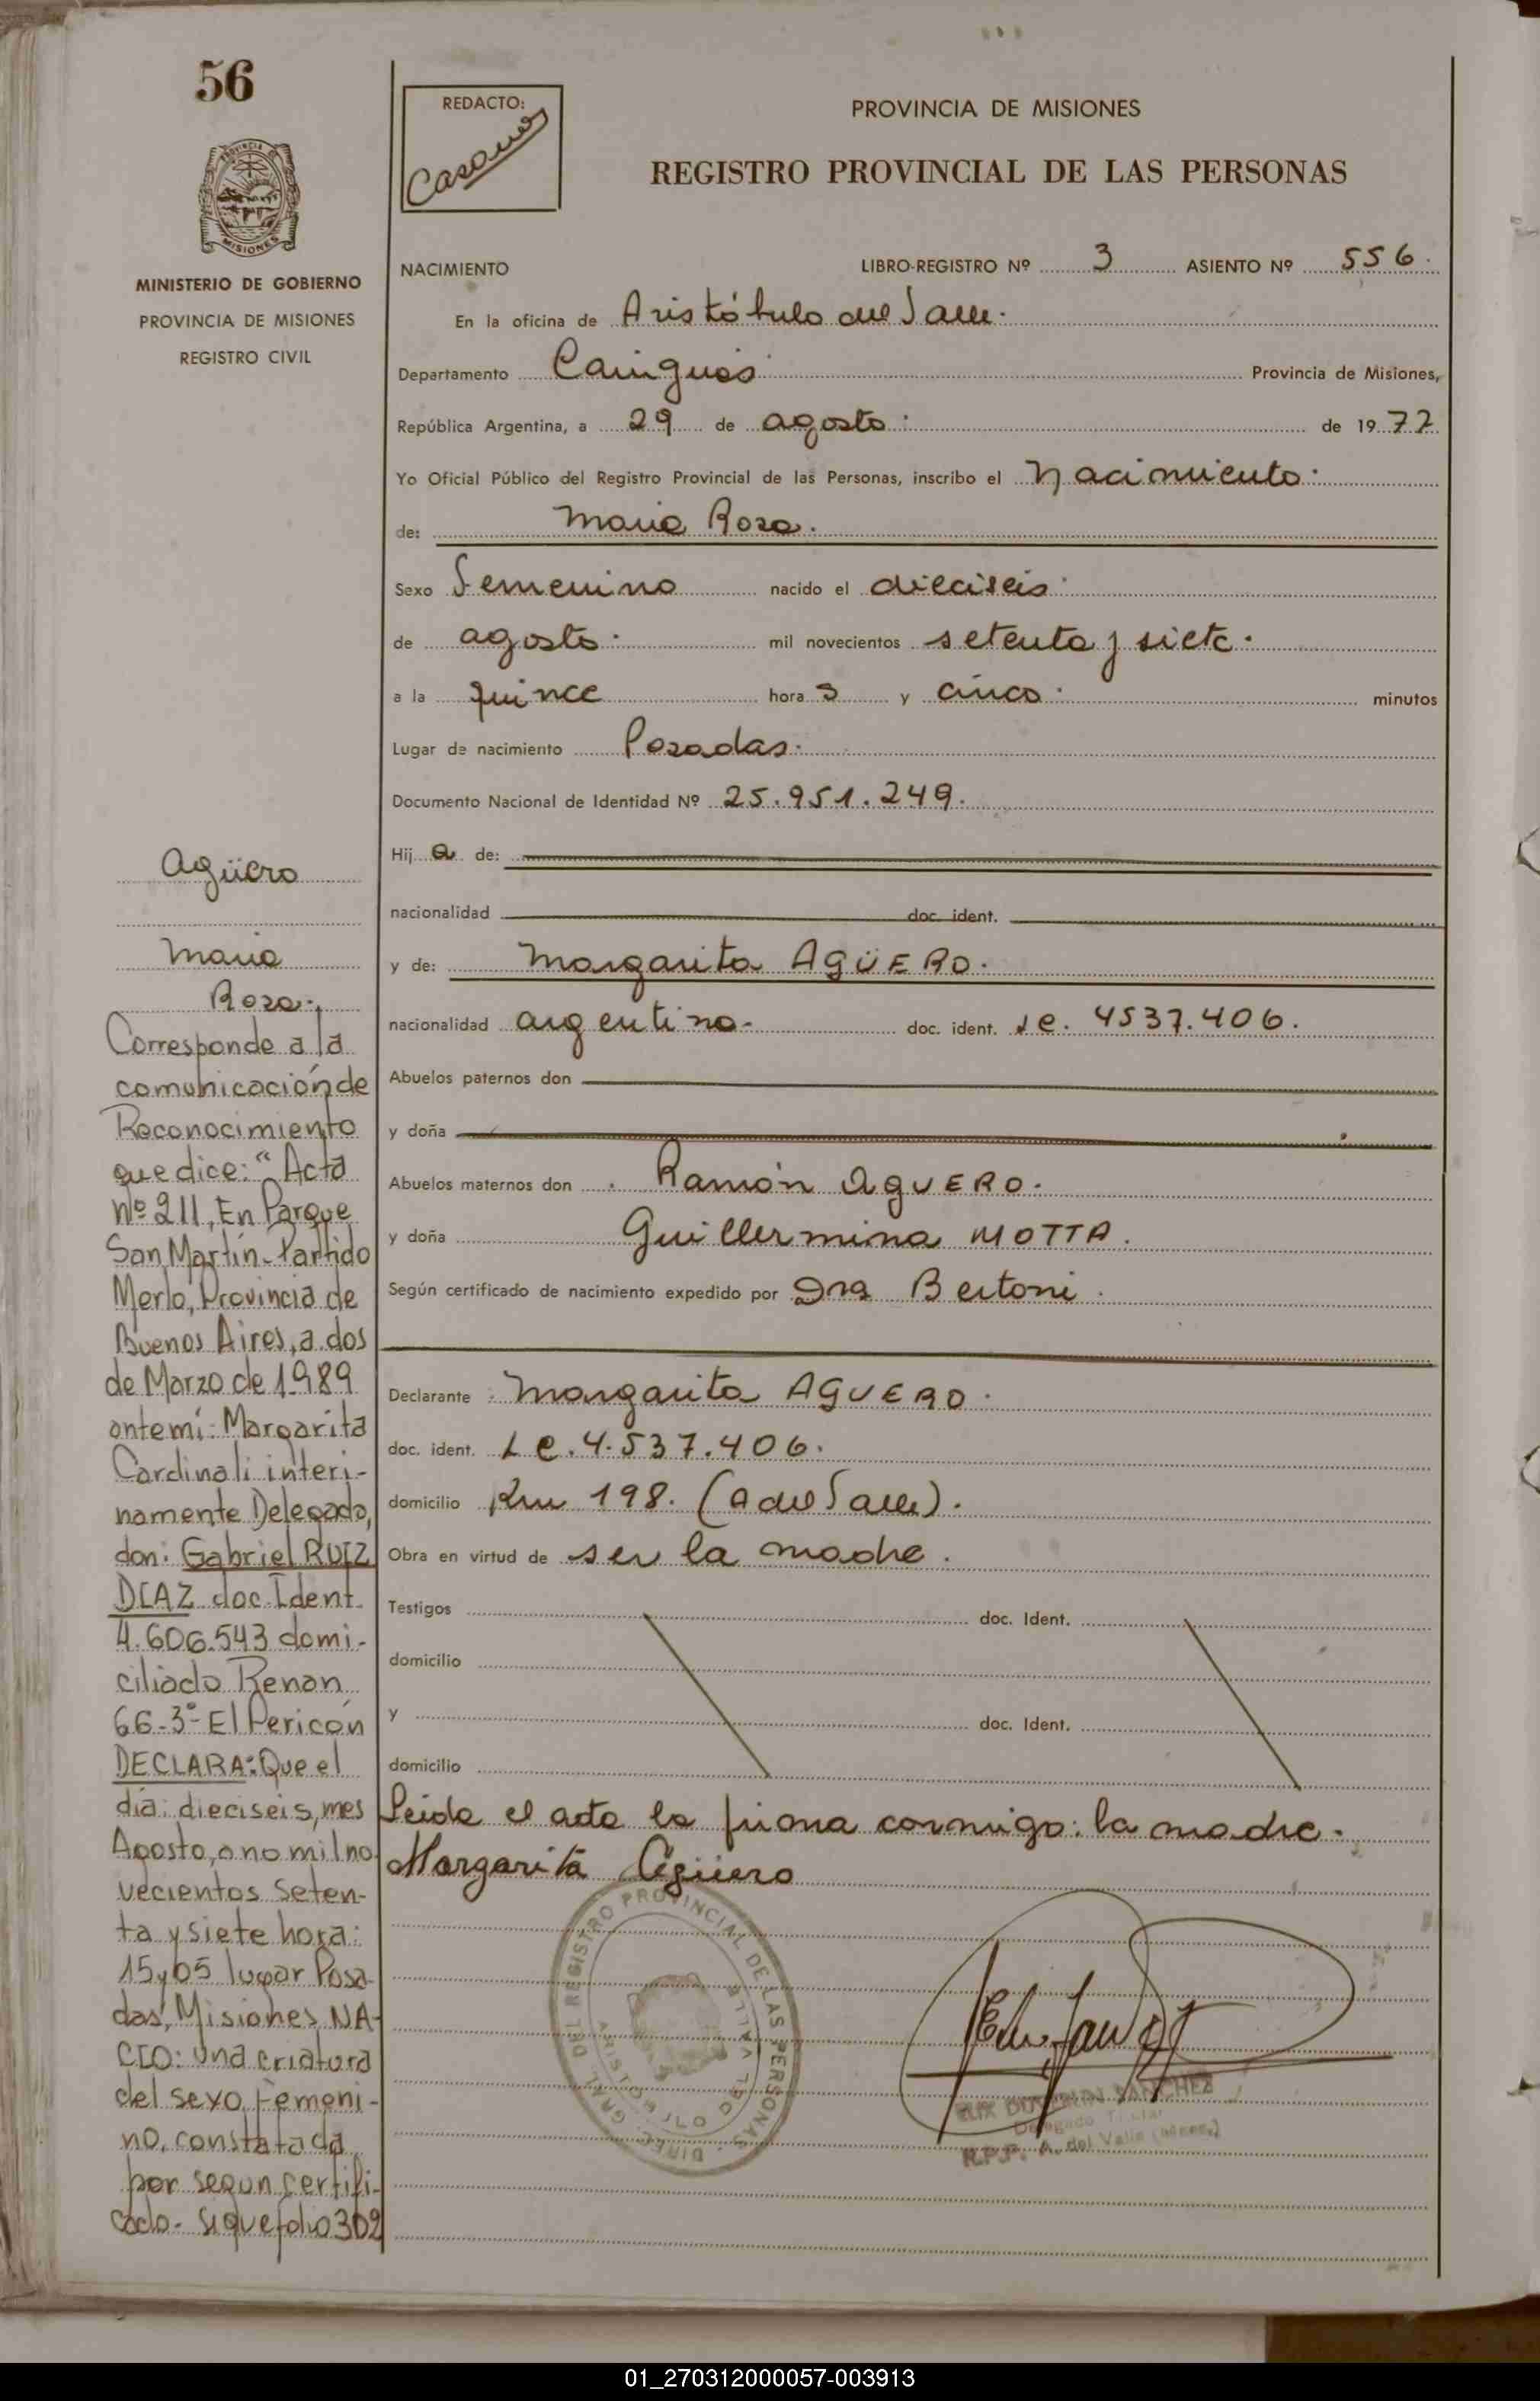 56
REDACTO:
PROVINCIA DE MISIONES
REGISTRO PROVINCIAL DE LAS PERSONAS
PROVINCIA DE
MISIONES
MINISTERIO DE GOBIERNO
PROVINCIA DE MISIONES
REGISTRO CIVIL
NACIMIENTO LIBRO-REGISTRO Nº 3 ASIENTO Nº 556.
En la oficina de Aristóbulo del Valle.
Departamento Cainguás Provincia de Misiones,
República Argentina, a 29 de agosto. de 1977
Yo Oficial Público del Registro Provincial de las Personas, inscribo el Nacimiento.
de: Maria Rosa.
Sexo Femenino nacido el dieciseis.
de agosto. mil novecientos setenta y siete.
a la quince hora s y cinco. minutos
Lugar de nacimiento Posadas.
Documento Nacional de Identidad Nº 25.951.249.
Hij a de:
nacionalidad doc. ident.
y de: Margarita AGÜERO.
nacionalidad argentina. doc. ident. Lc. 4537.406.
Abuelos paternos don
y doña
Abuelos maternos don Ramón AGUERO.
y doña Guillermina MOTTA.
Según certificado de nacimiento expedido por Dra Bertoni.
Declarante Margarita AGUERO.
doc. ident. Lc. 4.537.406.
domicilio Km 198. (A del Valle).
Obra en virtud de ser la madre.
Testigos doc. Ident.
domicilio
y doc. Ident.
domicilio
Leida el acta la firma conmigo: la madre.
Margarita Agüero
DIREC. GRAL. DEL REGISTRO PROVINCIAL DE LAS PERSONAS
ARISTOBULO DEL VALLE
SANCHEZ
Delegado Titular
R.P.P. A. del Valle (Mnes.)
Agüero
Maria
Rosa.
Corresponde a la
comunicación de
Reconocimiento
que dice: "Acta
nº 211, En Parque
San Martín-Partido
Merlo, Provincia de
Buenos Aires, a dos
de Marzo de 1989
antemí: Margarita
Cardinali interi-
namente Delegada,
don: Gabriel RUIZ
DIAZ doc. Ident.
4.606.543 domi-
ciliado Renan
66-3º-El Pericón
DECLARA: Que el
día: dieciseis, mes
Agosto, ano mil no
vecientos seten-
ta y siete hora:
15y05 lugar Posa-
das, Misiones NA-
CIO: una criatura
del sexo Femeni-
no, constatada
por segun certifi-
cado- sigue folio 302
01_270312000057-003913